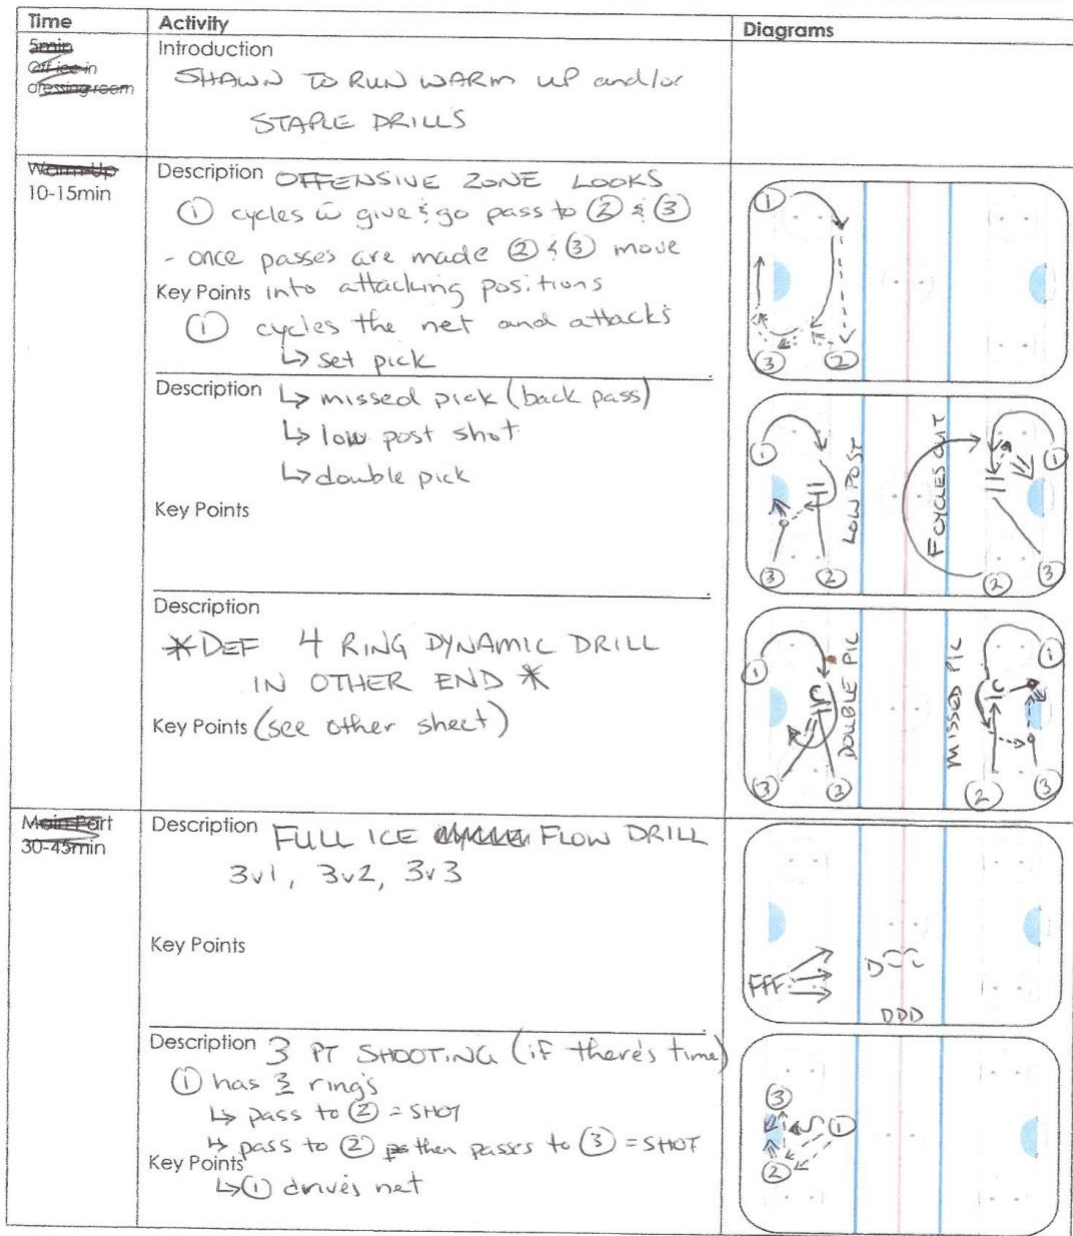 Time Activity Diagrams
5min Introduction
Off ice in
dressing room
SHAWN TO RUN WARM UP and/or
STAPLE DRILLS
Warm-Up
10-15min
Description OFFENSIVE ZONE LOOKS
① cycles w give & go pass to ② & ③
- once passes are made ② & ③ move
Key Points into attacking positions
① cycles the net and attacks
↳ set pick
① ② ③
Description ↳ missed pick (back pass)
↳ low post shot
↳ double pick
Key Points
① ② ③ LOW POST
F CYCLES OUT ① ② ③
Description
*DEF 4 RING DYNAMIC DRILL
IN OTHER END *
Key Points (see other sheet)
① ② ③ DOUBLE PIC
MISSED PIC ① ② ③
Main Part
30-45min
Description FULL ICE FLOW DRILL
3v1, 3v2, 3v3
Key Points
FFF D
DDD
Description 3 PT SHOOTING (if there's time)
① has 3 ring's
↳ pass to ② = SHOT
↳ pass to ② then passes to ③ = SHOT
Key Points
↳ ① drives net
③ ① ②